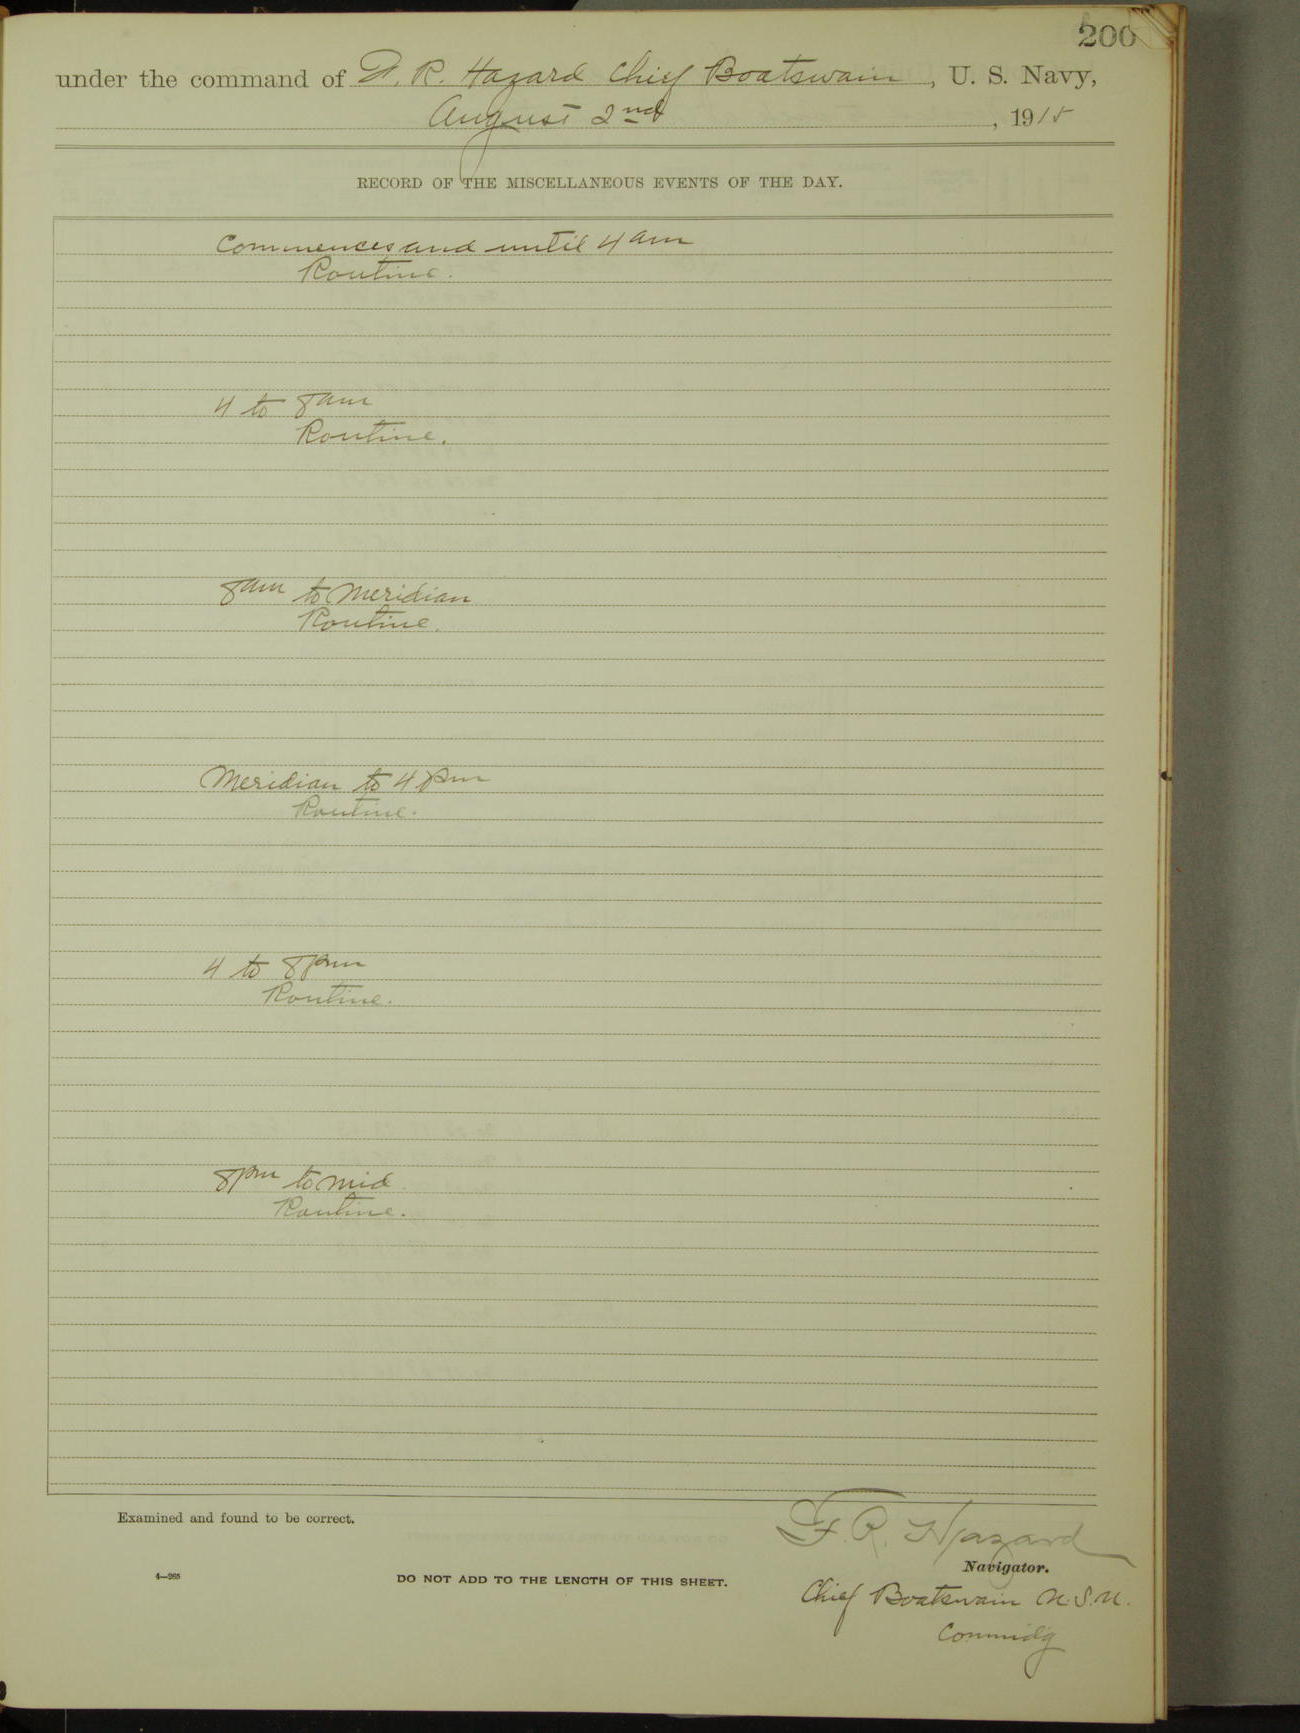 200
under the command of F. R. Hazard Chief Boatswain, U. S. Navy,
August 2nd, 1915
RECORD OF THE MISCELLANEOUS EVENTS OF THE DAY.
Commences and until 4 am
Routine.
4 to 8 am
Routine.
8 am to Meridian
Routine.
Meridian to 4 pm
Routine.
4 to 8 pm
Routine.
8 pm to mid
Routine.
Examined and found to be correct.
F. R. Hazard
Navigator.
4—265
DO NOT ADD TO THE LENGTH OF THIS SHEET.
Chief Boatswain U.S.N.
Commid'g